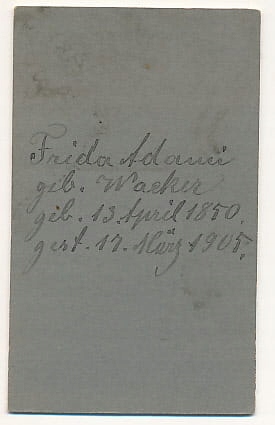 Frida Adami
geb. Wacker
geb. 13. April 1850.
gest. 17. März 1905.